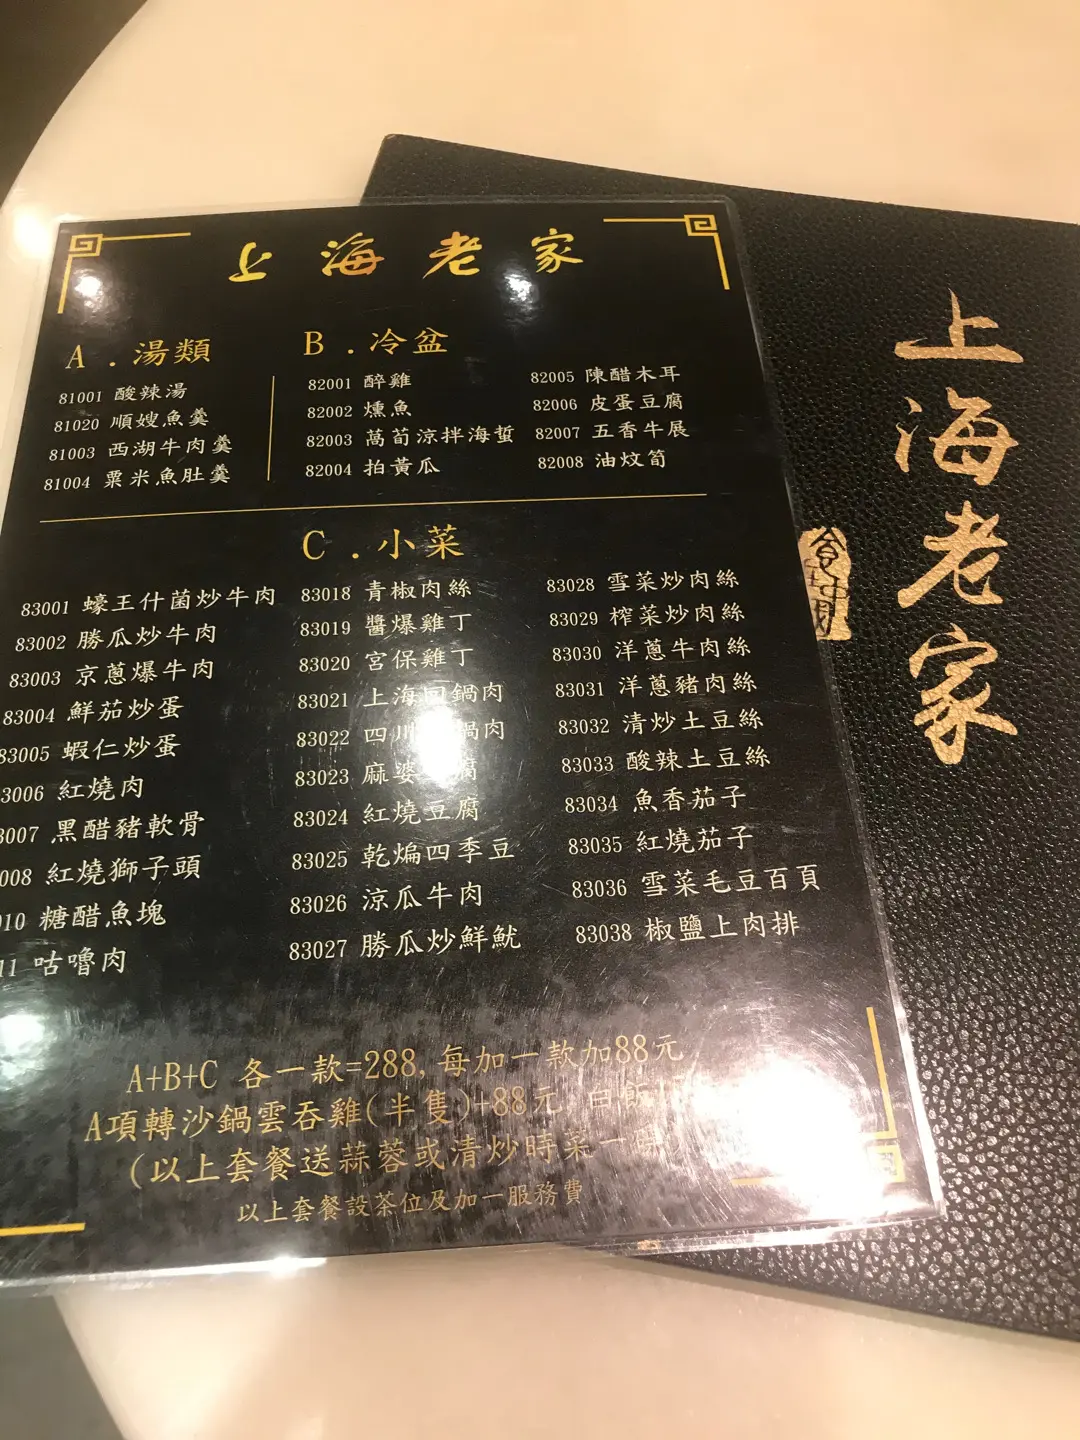 上海老家
A.湯類
81001 酸辣湯
81020 順嫂魚羹
81003 西湖牛肉羹
81004 粟米魚肚羹
B.冷盆
82001 醉雞
82002 燻魚
82003 萵荀涼拌海蜇
82004 拍黃瓜
82005 陳醋木耳
82006 皮蛋豆腐
82007 五香牛展
82008 油炆筍
C.小菜
83001 蠔王什菌炒牛肉
83002 勝瓜炒牛肉
83003 京蔥爆牛肉
83004 鮮茄炒蛋
83005 蝦仁炒蛋
3006 紅燒肉
3007 黑醋豬軟骨
008 紅燒獅子頭
10 糖醋魚塊
11 咕嚕肉
83018 青椒肉絲
83019 醬爆雞丁
83020 宮保雞丁
83021 上海回鍋肉
83022 四川鍋肉
83023 麻婆腐
83024 紅燒豆腐
83025 乾煸四季豆
83026 涼瓜牛肉
83027 勝瓜炒鮮魷
83028 雪菜炒肉絲
83029 榨菜炒肉絲
83030 洋蔥牛肉絲
83031 洋蔥豬肉絲
83032 清炒土豆絲
83033 酸辣土豆絲
83034 魚香茄子
83035 紅燒茄子
83036 雪菜毛豆百頁
83038 椒鹽上肉排
A+B+C 各一款=288,每加一款加88元
A項轉沙鍋雲吞雞(半隻)+88元 白飯
(以上套餐送蒜蓉或清炒時菜一
以上套餐設茶位及加一服務費
上海老家